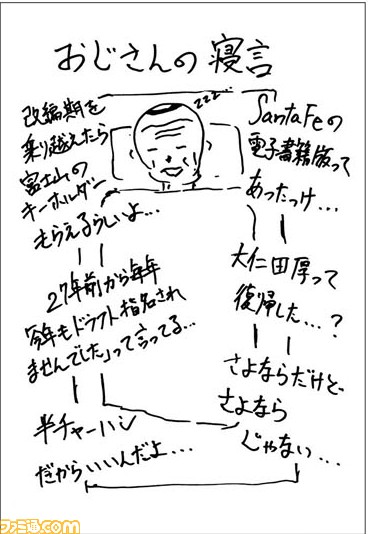 おじさんの寝言
zzz
改編期を
乗り越えたら
富士山の
キーホルダー
もらえるらしいよ…
SantaFeの
電子書籍版って
あったっけ…
27年前から毎年
「今年もドラフト指名され
ませんでした」って言ってる…
大仁田厚って
復帰した…?
さよならだけど
さよなら
じゃない…
半チャーハン
だからいいんだよ…
ファミ通.com